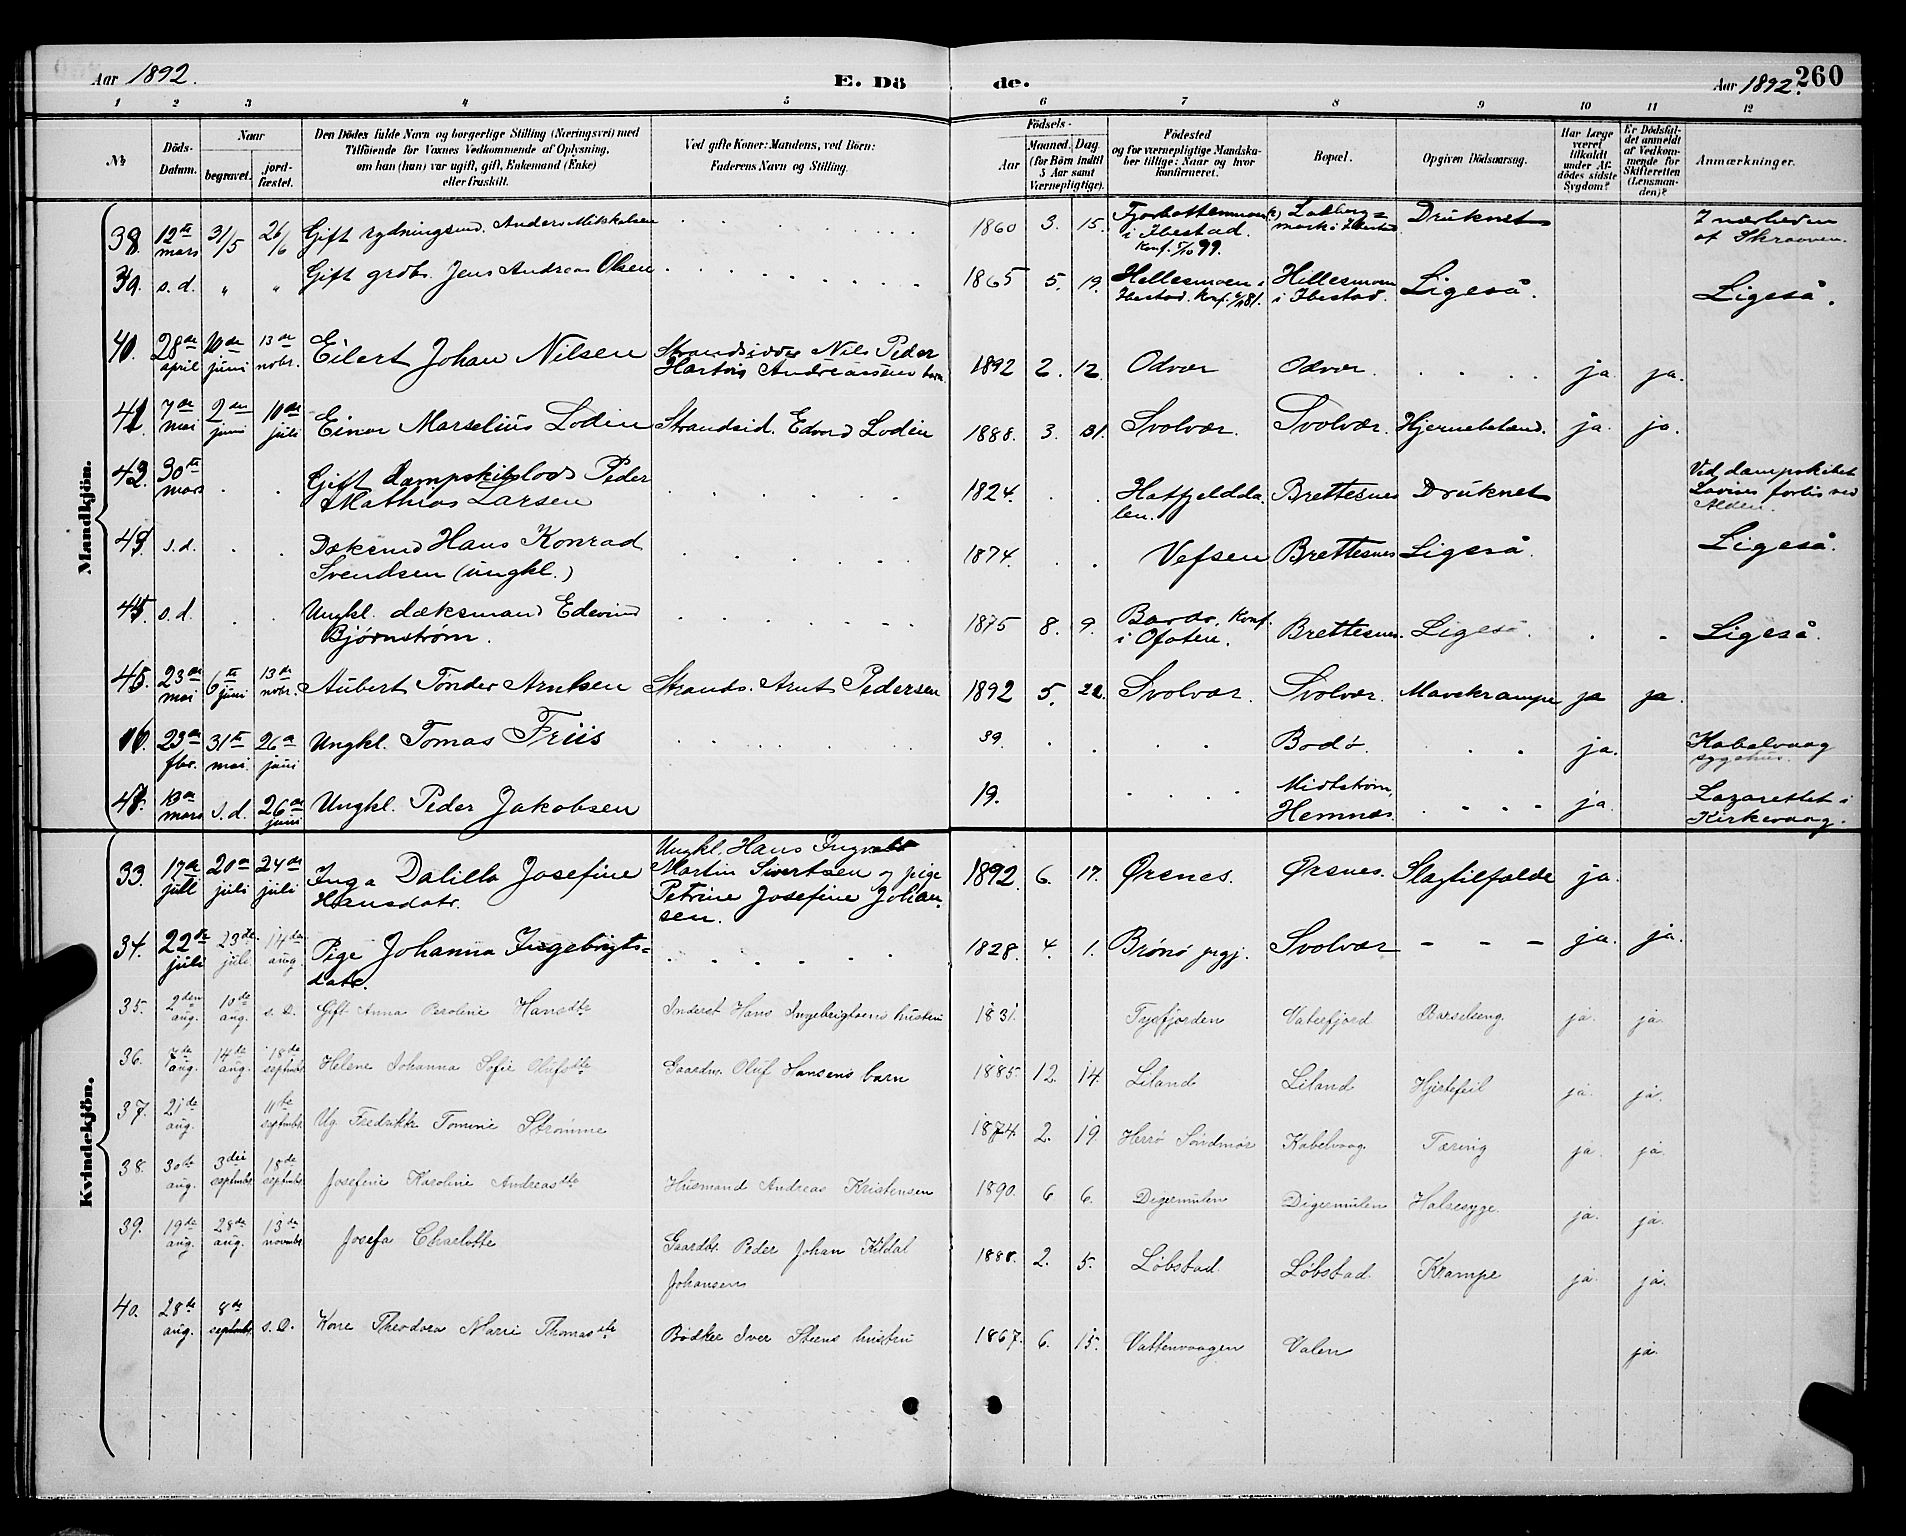 Aar 1892.
E. Dö
de.
Aar 1892. 260
1 2 3 4 5 6 7 8 9 10 11 12
№
Döds-
Datum.
Naar
begravet.
jord-
fæstet.
Den Dödes fulde Navn og borgerlige Stilling (Næringsvei) med
Tilföiende for Voxnes Vedkommende af Oplysning,
om han (hun) var ugift, gift, Enkemand (Enke)
eller fraskilt.
Ved gifte Koner: Mandens, ved Börn:
Faderens Navn og Stilling.
Födsels-
Aar
Maaned. Dag.
(for Börn indtil
5 Aar samt
Værnepligtige).
Födested
og for værnepligtige Mandska-
ber tillige: Naar og hvor
konfirmeret.
Bopæl.
Opgiven Dödsaarsag.
Har Læge
været
tilkaldt
under Af-
dödes sidste
Sygdom?
Er Dödsfal-
det anmeldt
af Vedkom-
mende for
Skifteretten
(Lensman-
den)?
Anmærkninger.
Mandkjön.
38. 12te mars 31/5 26/6 Gift rydningsmd. Anders Mikkalsen 1860 3. 15. i Ibestad. Druknet I nærheden af Skraaven.
39. s.d. " " Gift grdbr. Jens Andreas Olsen 1865 5. 19. Hellesmoen i Ibestad. Hillesmoen i Ibestad. Ligeså. Ligeså.
40. 28de april 10de juni 13de nobr. Eilert Johan Nilsen Strandsidder Nils Peder Hartvig Andreassens barn 1892 2. 12. Odvær Odvær. ja. ja.
41. 7de mai 2den juni 10de juli Einar Marselius Lodin Strandsid. Edvard Lodin 1888. 3. 31. Svolvær. Svolvær. Hjernebetænd. ja. ja.
42. 30te mars Gift dampskibslods Peder Mathias Larsen 1824. Hatfjeldda- len. Brettesnes Druknet Ved dampskibet forlis ved Alden.
s.d. Dæksmd Hans Konrad Svendsen (ungkl.) 1874. Vefsen Brettesnes Ligeså. Ligeså.
s.d. Ungkl. dæksmand Edvin Bjørnstrøm. 1875 8. 9. Konf. i Ofoten. Brettesnes. Ligeså. Ligeså.
45. 23de mai 6te juni 13de nobr. Aubert Tønder Arntsen Strands. Arnt Pedersen 1892 5. 22. Svolvær. Svolvær. Mavekrampe ja ja.
23de fbr. 31te mai. 26de juni Ungkl. Tomas Friis 39. Bodø. ja. Kabelvaag sygehus.
mars s.d. 26de juni Ungkl. Peder Jakobsen 19. Midtstrøm, Hemnæs. ja. Lazarettet i Kirkevaag.
Kvindekjön.
33. 17de juli 20de juli 24de juli Inga Dalilla Josefine Hansdatr. Ungkl. Hans Ingvald Martin Sivertsen og pige Petrine Josefine Johan- sen. 1892. 6. 17. Ørsnes. Ørsnes. Slagtilfælde ja.
34. 22de juli 23de juli 14de aug. Pige Johanna Ingebrigts- datr. 1828. 4. 1. Brønø prgj. Svolvær - - - ja. ja.
35. 2den aug. 10de aug. s.D. Gift Anna Beroline Hansdtr Inderst Hans Ingebrigtsens hustru 1831. Tysfjorden Vaterfjord Barselseng ja. ja.
36. 7de aug. 14de aug. 18de septmbr. Helene Johanna Sofie Olufsdtr Gaardm. Oluf Hansens barn 1885. 12. 14. Liland Liland Hjertefeil ja. ja.
37. 21de aug. 11te septmbr. Ug. Fredrikke Tomine Strømme 1874. 2. 19. Herrø Søndmør Kabelvaag. Tæring ja. ja.
38. 30te aug. 3die septmbr. 18de septmbr. Josefine Karoline Andreasdtr Husmand Andreas Kristensen 1890. 6 6. Digermulen Digermulen Halsesyge. ja. ja.
39. 19de aug. 28de aug. 13de novmbr. Josefa Charlotte Gaardbr. Peder Johan Kildal Johansens 1888. 2. 5. Løbstad. Løbstad. Krampe ja. ja.
40. 28de aug. 8de septmbr. s.D. Kone Theodora Marie Thomasdtr Bødker Iver Steens hustru 1867. 6. 15. Vattenvaagen Valen ja.